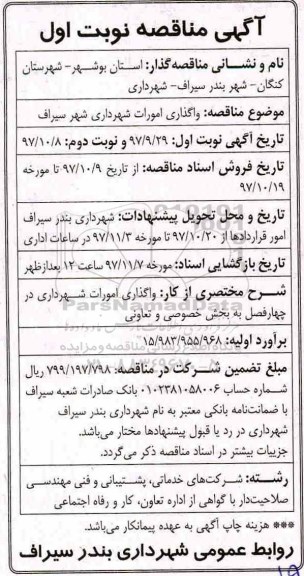 آگهی مناقصه نوبت اول
نام و نشانی مناقصه‌گذار: استان بوشهر- شهرستان
کنگان- شهر بندر سیراف- شهرداری
موضوع مناقصه: واگذاری امورات شهرداری شهر سیراف
تاریخ آگهی نوبت اول: ۹۷/۹/۲۹ و نوبت دوم: ۹۷/۱۰/۸
تاریخ فروش اسناد مناقصه: از تاریخ ۹۷/۱۰/۹ تا مورخه
۹۷/۱۰/۱۹
تاریخ و محل تحویل پیشنهادات: شهرداری بندر سیراف
امور قراردادها از ۹۷/۱۰/۲۰ تا مورخه ۹۷/۱۱/۳ در ساعات اداری
تاریخ بازگشایی اسناد: مورخه ۹۷/۱۱/۷ ساعت ۱۲ بعدازظهر
شرح مختصری از کار: واگذاری امورات شهرداری در
چهارفصل به بخش خصوصی و تعاونی
ParsNamadData
برآورد اولیه: ۱۵/۹۸۳/۹۵۵/۹۶۸
مبلغ تضمین شرکت در مناقصه: ۷۹۹/۱۹۷/۷۹۸ ریال
شماره حساب ۰۱۰۲۳۸۱۰۵۸۰۰۶ بانک صادرات شعبه سیراف
با ضمانت‌نامه بانکی معتبر به نام شهرداری بندر سیراف
شهرداری در رد یا قبول پیشنهادها مختار می‌باشد.
جزییات بیشتر در اسناد مناقصه ذکر می‌گردد.
رشته: شرکت‌های خدماتی، پشتیبانی و فنی مهندسی
صلاحیت‌دار با گواهی از اداره تعاون، کار و رفاه اجتماعی
*** هزینه چاپ آگهی به عهده پیمانکار می‌باشد.
روابط عمومی شهرداری بندر سیراف